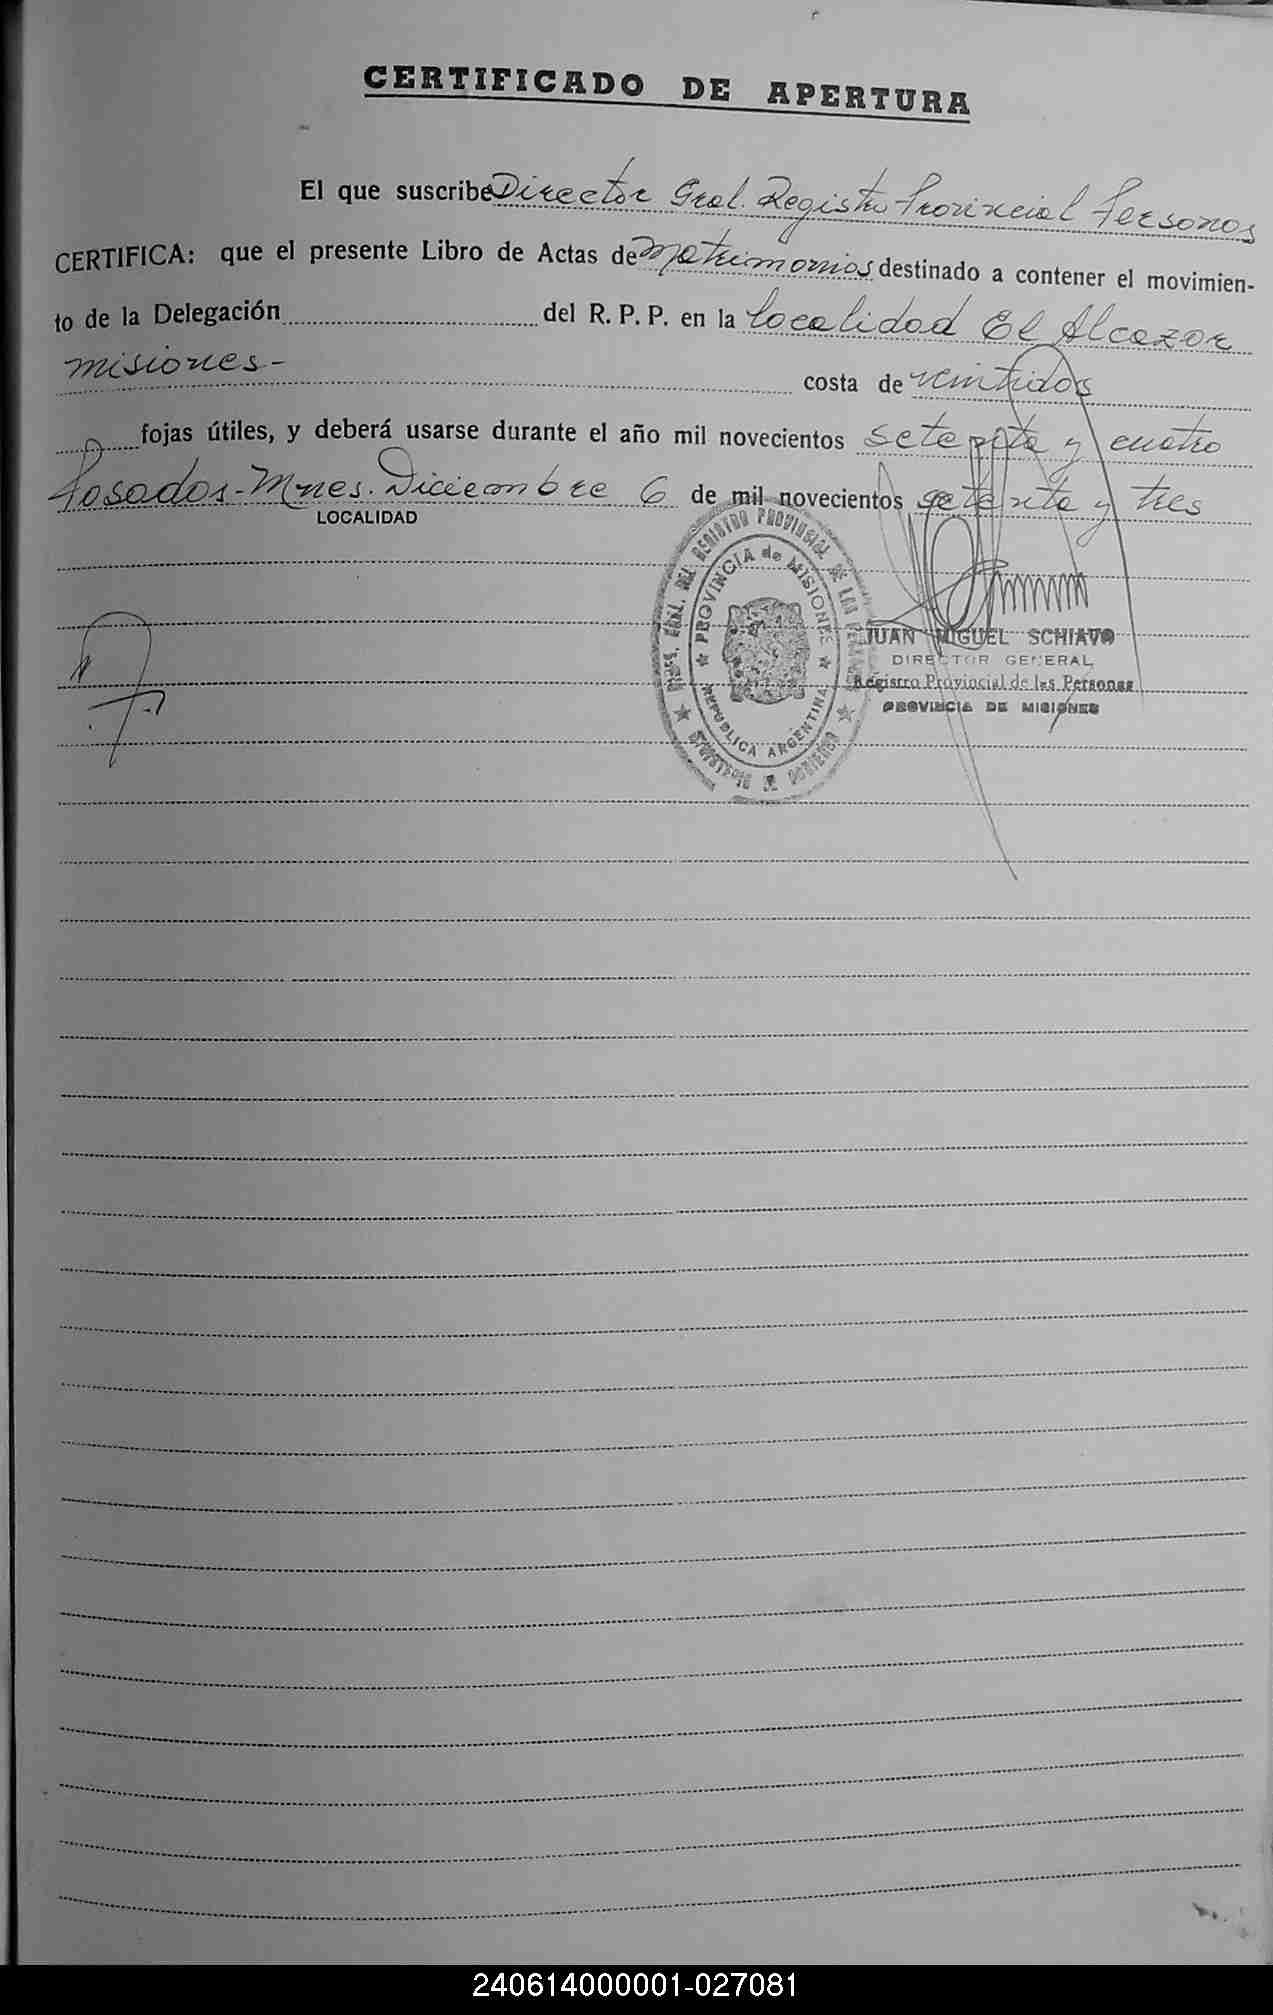 CERTIFICADO DE APERTURA
El que suscribe Director Gral. Registro Provincial Personas
CERTIFICA: que el presente Libro de Actas de Matrimonios destinado a contener el movimien-
to de la Delegación del R. P. P. en la localidad El Alcazar
misiones- costa de veintidos
fojas útiles, y deberá usarse durante el año mil novecientos setenta y cuatro
Posadas-Mnes. Diciembre 6 de mil novecientos setenta y tres
LOCALIDAD
DEL REGISTRO PROVINCIAL DE LAS
PROVINCIA de MISIONES
REPUBLICA ARGENTINA
MINISTERIO DE GOBIERNO
JUAN MIGUEL SCHIAVO
DIRECTOR GENERAL
Registro Provincial de las Personas
PROVINCIA DE MISIONES
240614000001-027081